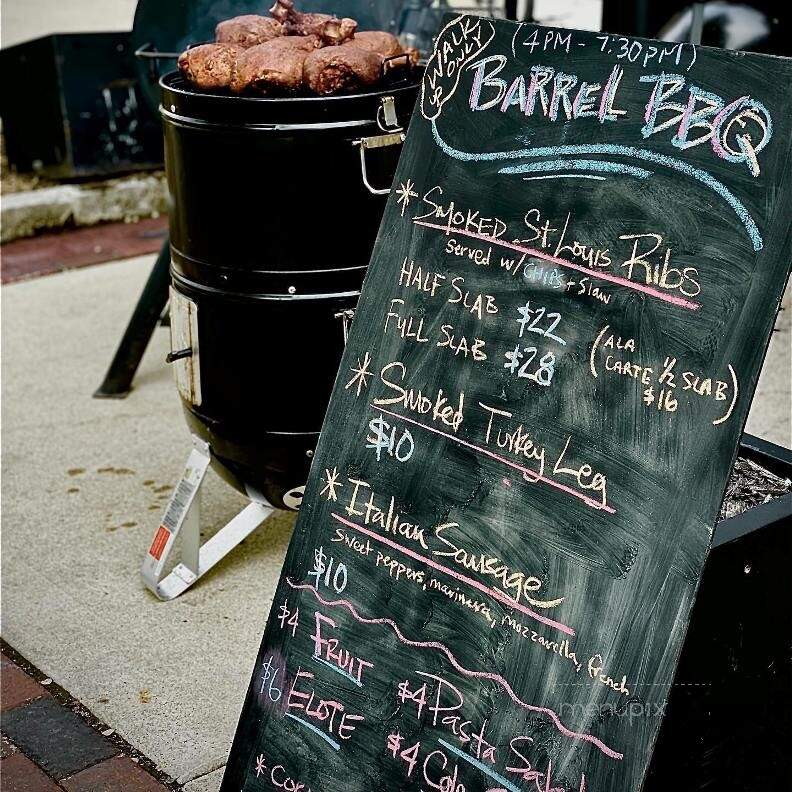 (4PM - 7:30PM)
WALK
UP
ONLY
BARREL BBQ
* SMOKED St. Louis Ribs
Served w/ CHIPS + Slaw
HALF SLAB $22
FULL SLAB $28
(ALA
CARTE 1/2 SLAB
$16)
* Smoked Turkey Leg
$10
* Italian Sausage
Sweet peppers, marinara, mozzarella, french
$10
$4 FRUIT
$6 ELOTE
$4 Pasta Salad
$4
menupix